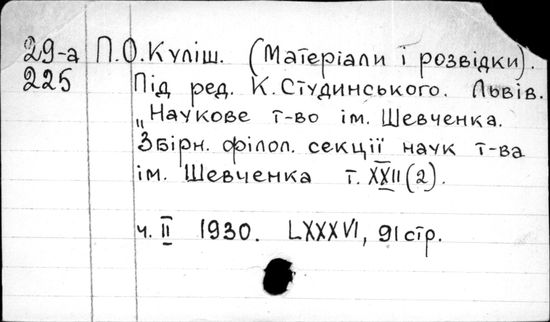 29-а П.О.Куліш. (Матеріали і розвідки).
225 Під ред. К.Студинського. Львів.
„Наукове т-во ім. Шевченка.
Збірн. філол. секції наук т-ва
ім. Шевченка т. XXII(2).
ч. II 1930. LXXXVI, 91стр.